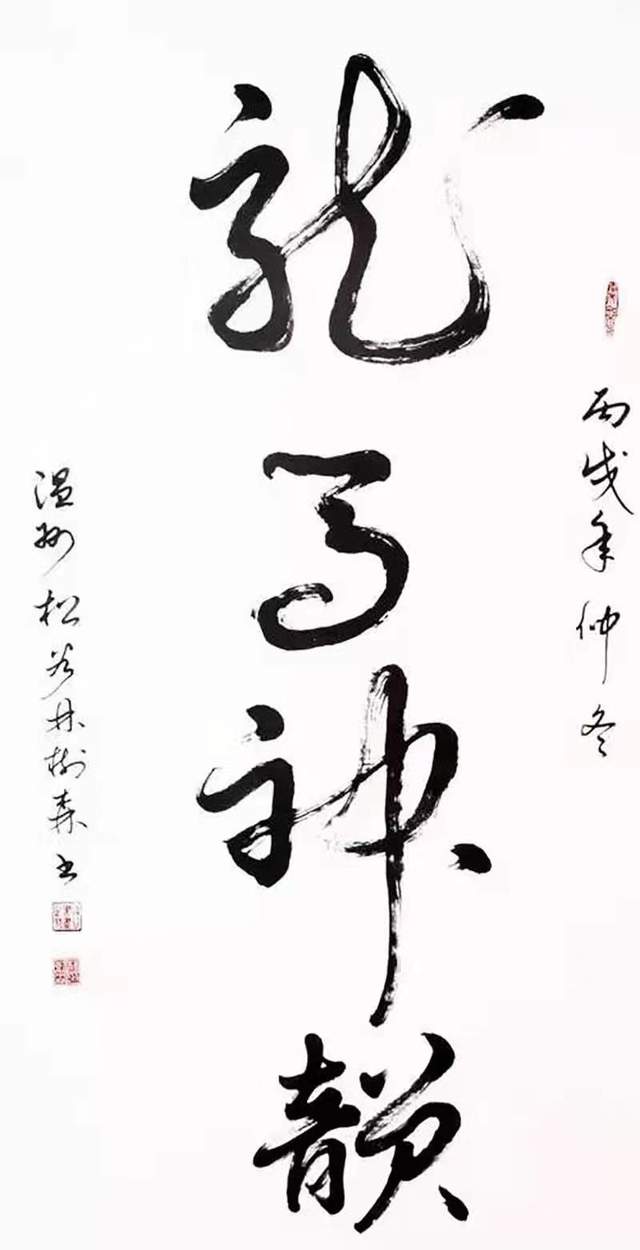 丙戌年仲冬
龍馬神韻
温州松谷林树森书